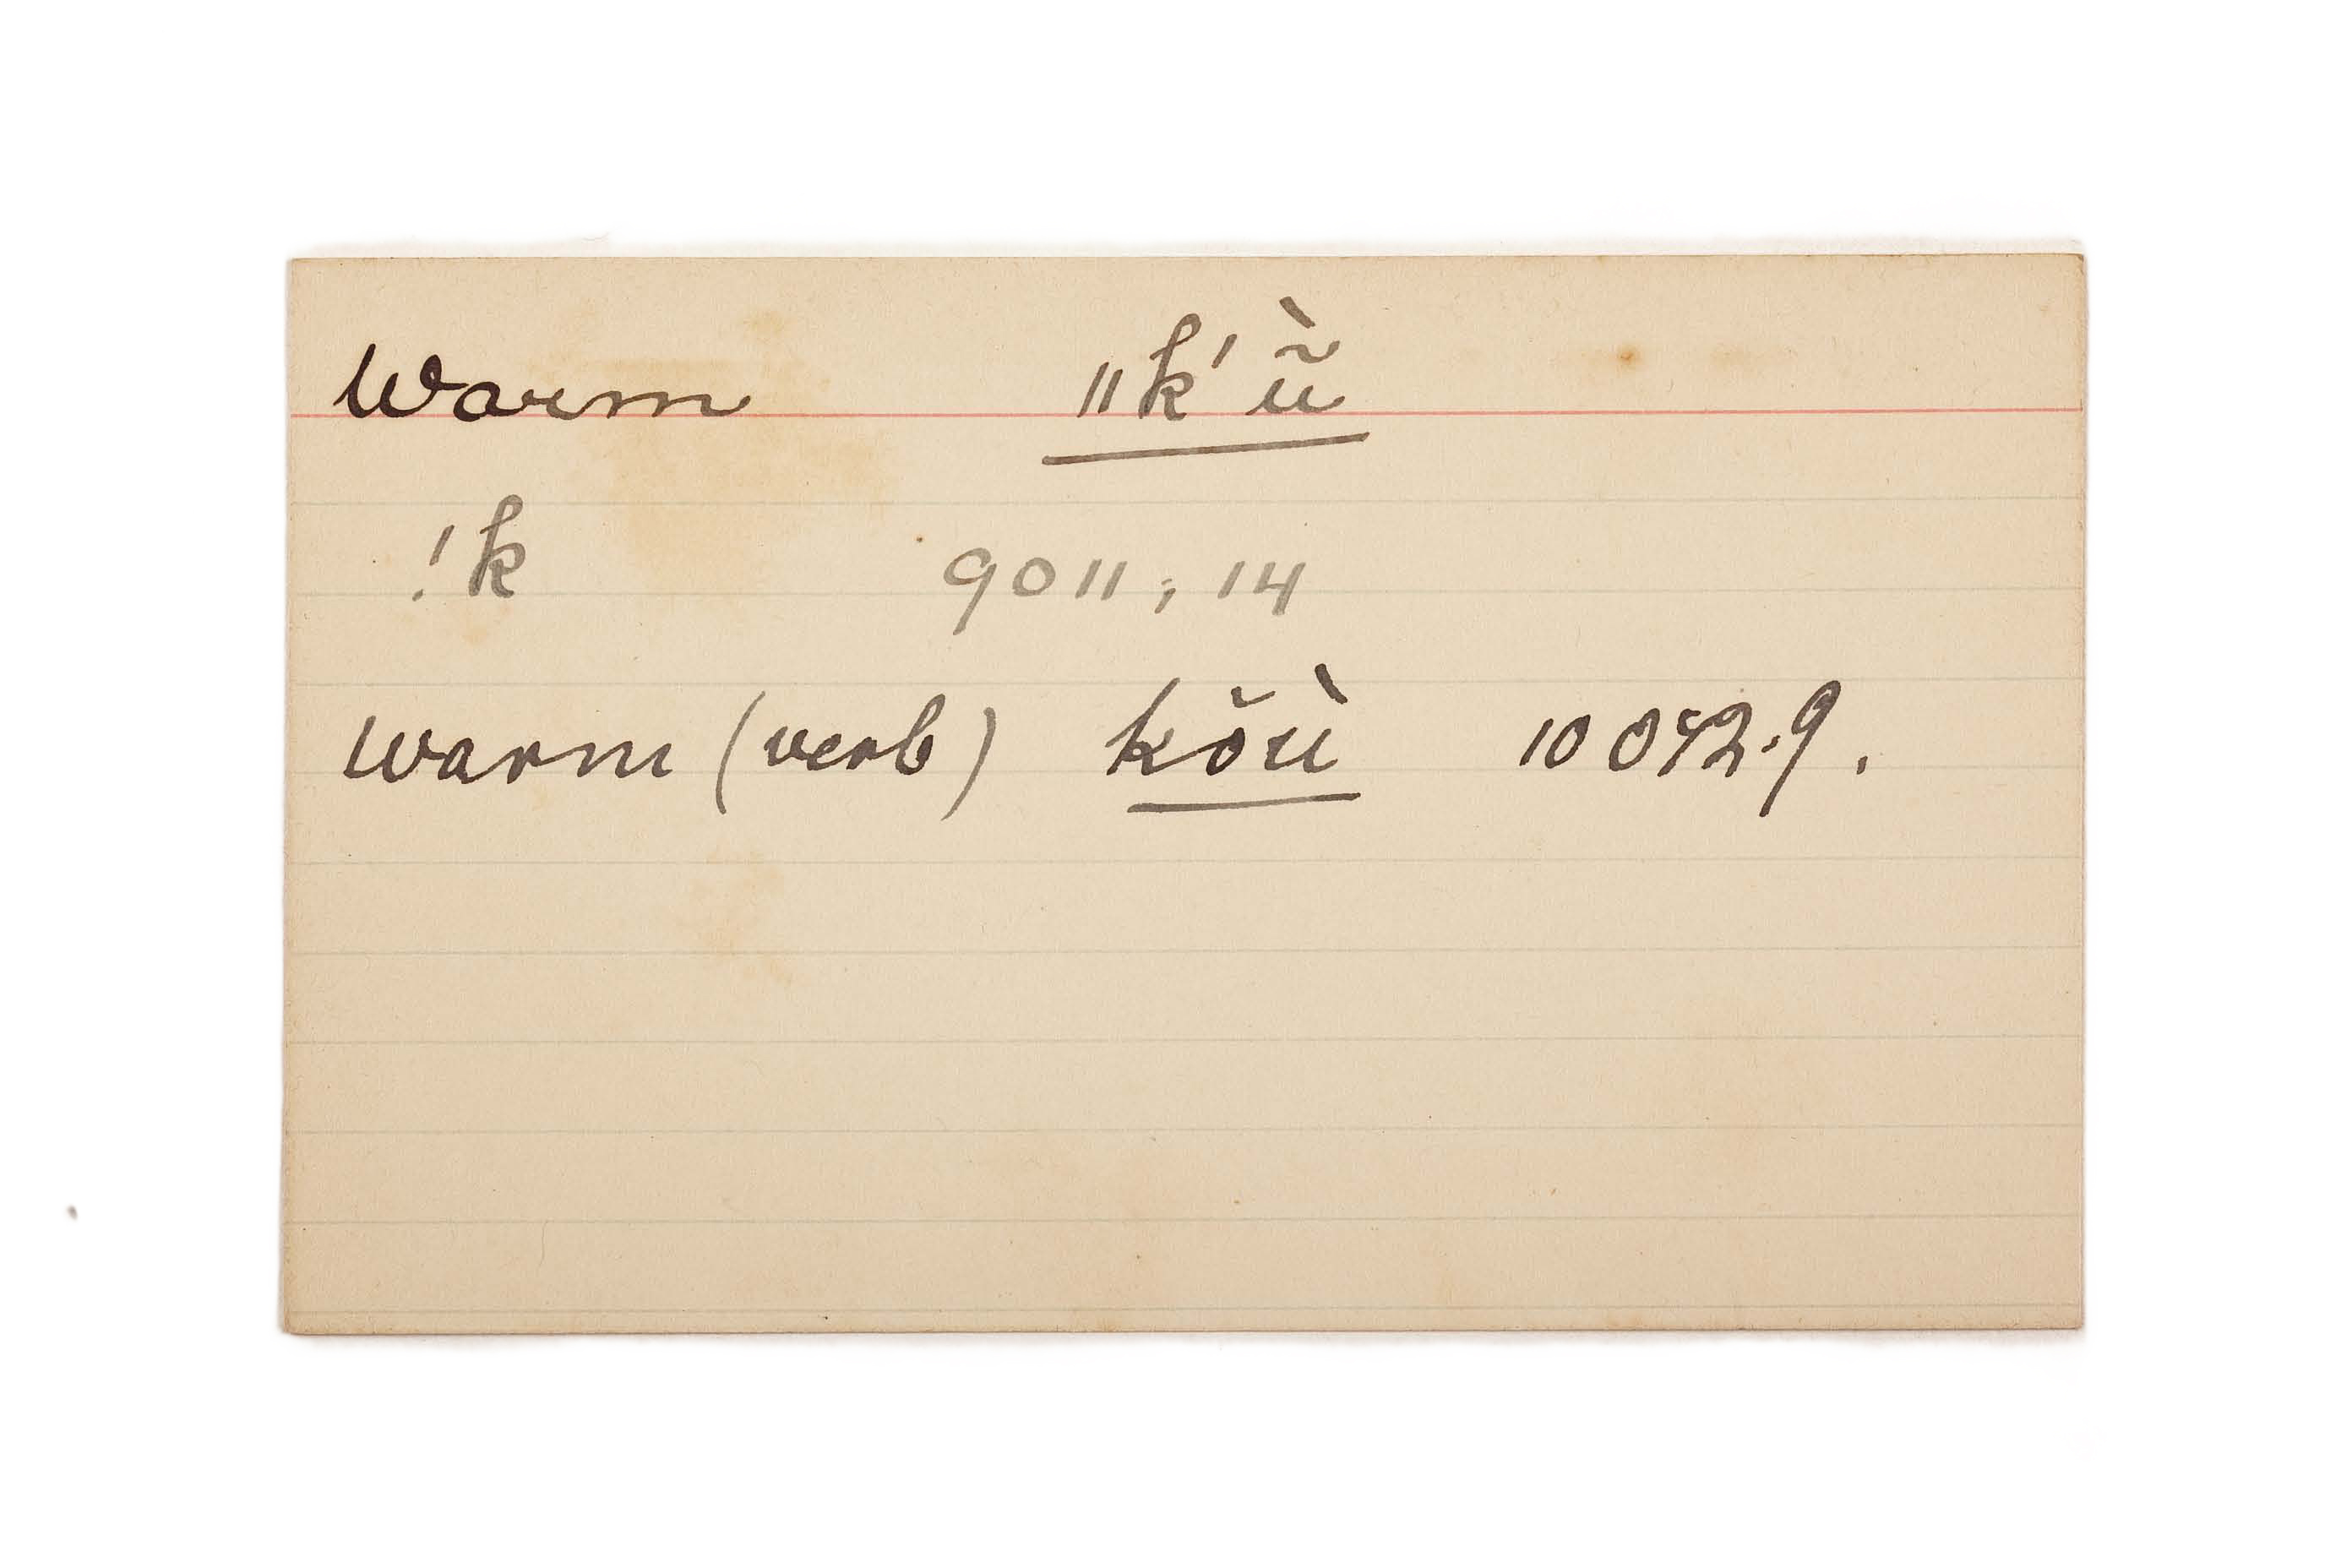 Warm ǁk'ũ̀
!k 9011; 14
warm (verb) kŏù 10042.9.